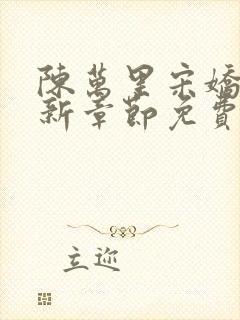 陳萬里宋嬌
新章節免費
立迩